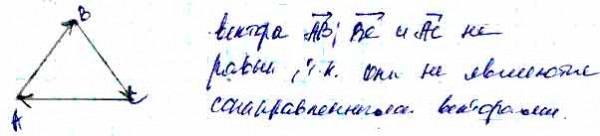 B
вектора AB; BC и AC не
равны, т.к. они не являются
A C сонаправленными векторами.